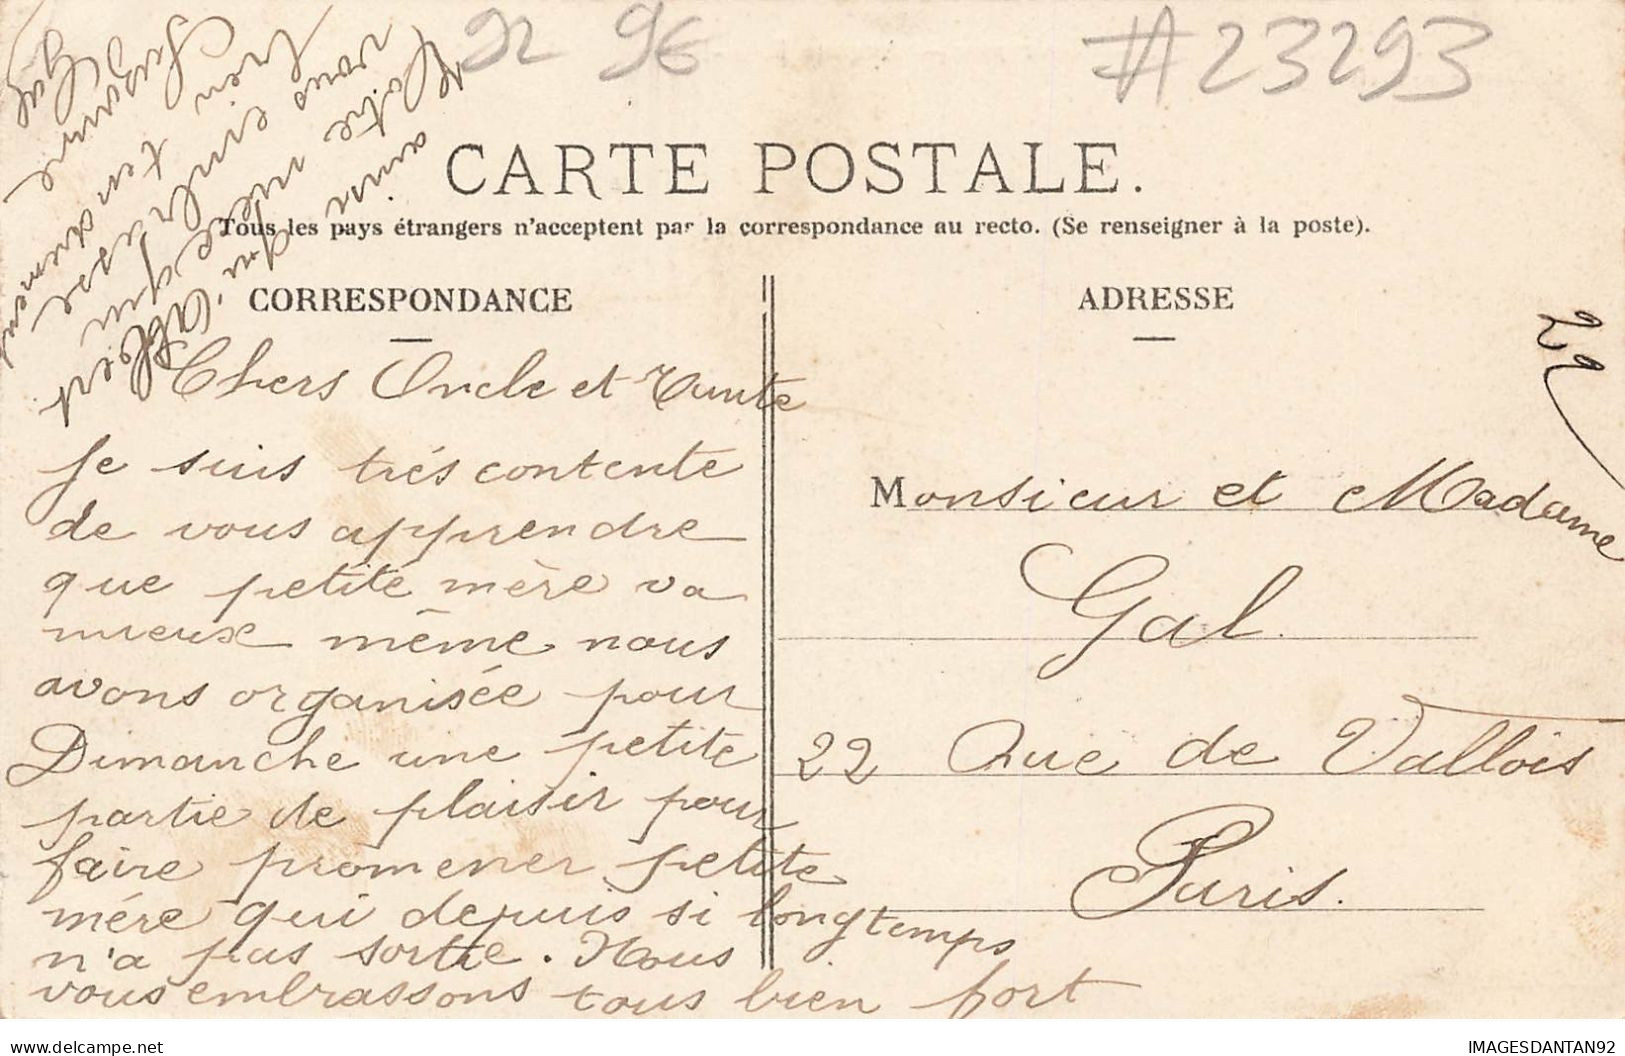 92 9€ #23293
CARTE POSTALE.
Tous les pays étrangers n'acceptent par la correspondance au recto. (Se renseigner à la poste).
CORRESPONDANCE
Chers Oncle et Tante
Je suis très contente
de vous apprendre
que petite mère va
mieux même nous
avons organisée pour
Dimanche une petite
partie de plaisir pour
faire promener petite
mére qui depuis si longtemps
n'a pas sortie. Nous
vous embrassons tous bien fort
ainsi que Albert
Votre nièce qui
vous embrasse
bien tendrement
Suzanne
Gal
ADRESSE
22
Monsieur et Madame
Gal.
22 Rue de Vallois
Paris.
delcampe.net
IMAGESDANTAN92